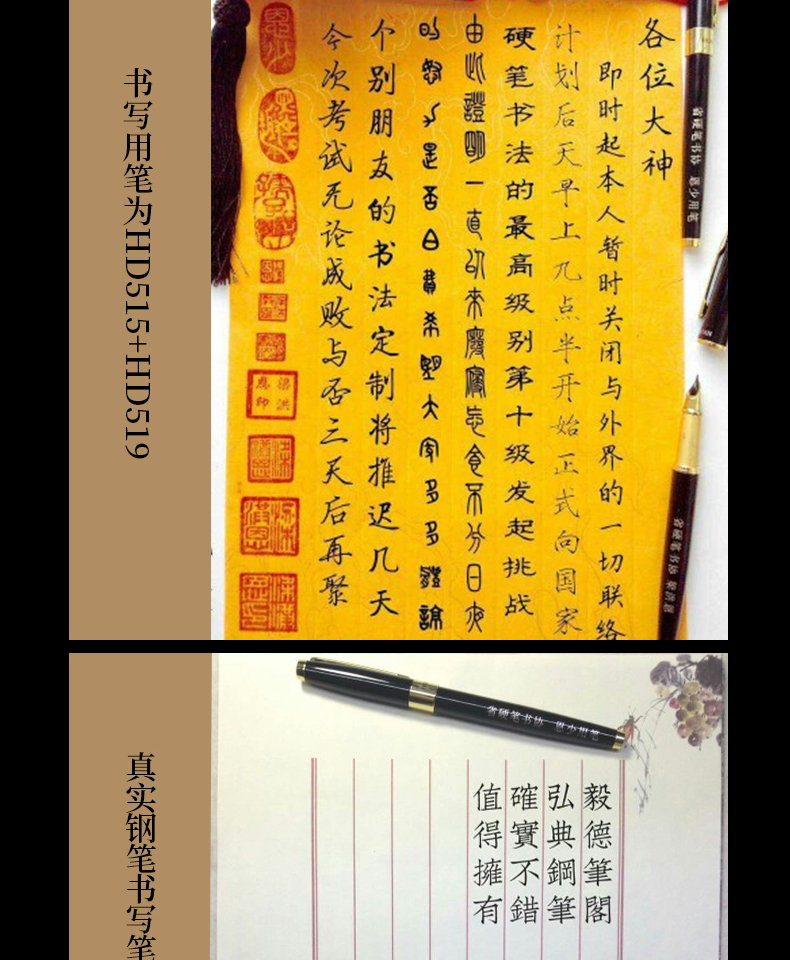 书写用笔为HD515+HD519
各位大神
即时起本人暂时关闭与外界的一切联络
计划后天早上九点半开始正式向国家
硬笔书法的最高级别第十级发起挑战
由此證明一直以來廢寢忘食不分日夜
的努力是否白費希望大家多多體諒
个别朋友的书法定制将推迟几天
今次考试无论成败与否三天后再聚
省硬笔书协 恩少用笔
省硬笔书协 梁洪恩
真实钢笔书写笔
省硬笔书协 恩少用笔
毅德筆閣
弘典鋼筆
確實不錯
值得擁有